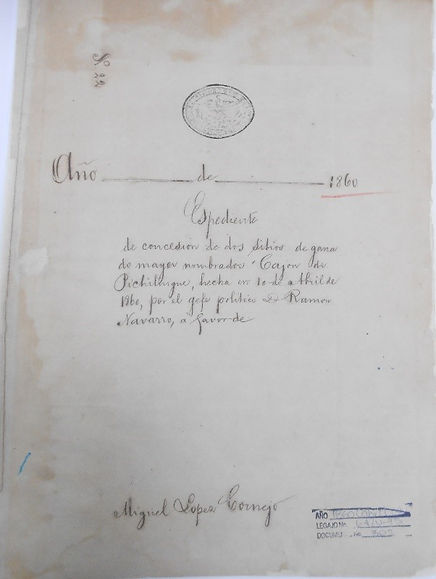 Nº 22
Año de 1860
Espediente
de concesion de dos sitios de gana
do mayor nombrados "Cajon de
Pichilingue, hecha en 10 de abril de
1860, por el gefe politico D. Ramon
Navarro, a favor de
Miguel Lopez Cornejo
AÑO
LEGAJO No.
DOCUMEN